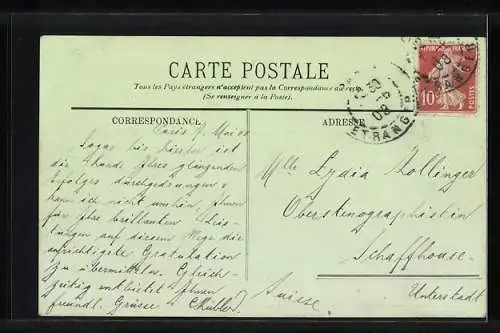 CARTE POSTALE
Tous les Pays étrangers n'acceptent pas la Correspondance au recto
(Se renseigner à la Poste).
CORRESPONDANCE
ADRESSE
Paris 7. Mai 08
bis hierher ist
die Kunde Ihres glänzenden
Erfolges durchgedrungen &
kann ich nicht umhin, Ihnen
für Ihre brillanten Leis-
tungen auf diesem Wege die
aufrichtigste Gratulation
zu übermitteln. Gleich-
zeitig entbietet Ihnen
freundl. Grüsse
Mlle Lydia Zollinger
Oberstenographistin
Schaffhouse.
Unterstadt
Suisse
ETRANGER
08
10
POSTES